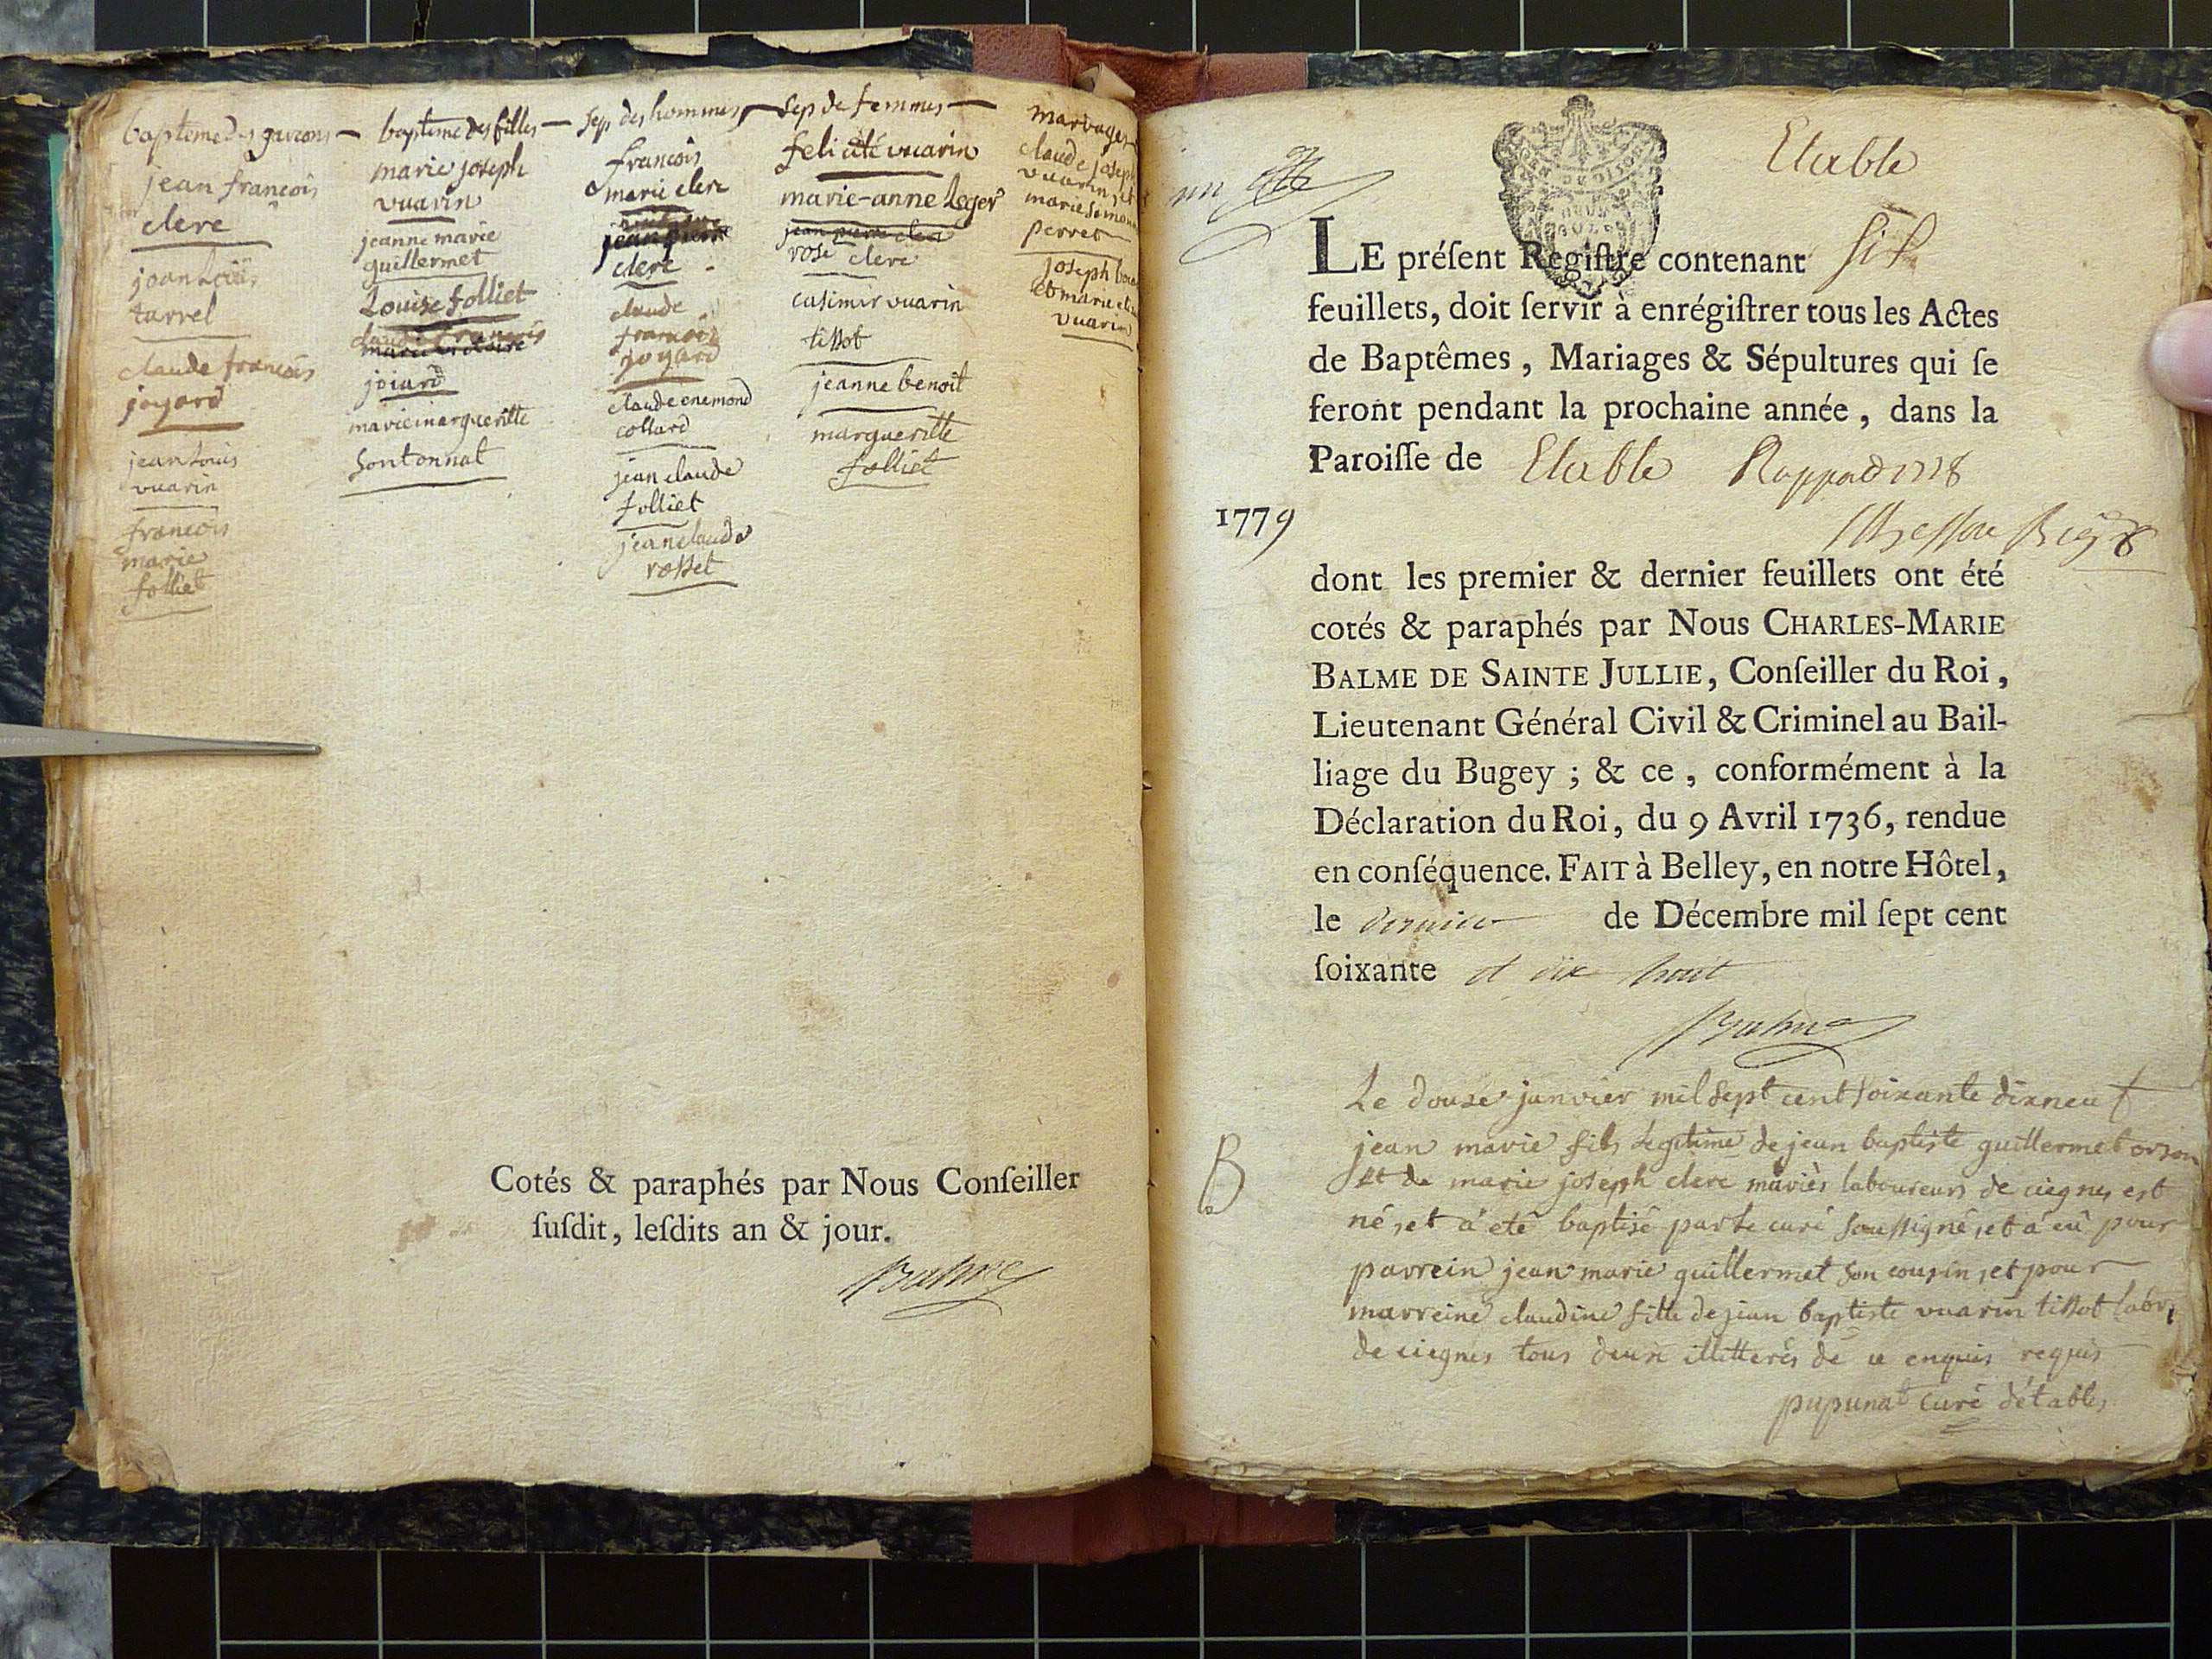 baptême des garcons — baptême des filles — sep des hommes — sep de femmes — mariages
jean françois
clerc
jean Loüis
tarrel
claude françois
joyard
jean Louis
vuarin
françois
marie
folliet
marie joseph
vuarin
jeanne marie
guillermet
Louise folliet
joiard
marie margueritte
sontonnat
françois
marie clerc
jean pierre
clerc
claude
françois
joyard
claude enemond
collard
jean claude
folliet
jean claude
rosset
felicité vuarin
marie-anne Leger
jean pierre clerc
rose clerc
casimir vuarin
tissot
jeanne benoit
margueritte
folliet
claude joseph
vuarin, et
marie
perret
joseph
et marie
vuarin
Cotés & paraphés par Nous Conseiller
susdit, lesdits an & jour.
Balme
un
Etable
LE présent Registre contenant six
feuillets, doit servir à enrégistrer tous les Actes
de Baptêmes, Mariages & Sépultures qui se
feront pendant la prochaine année, dans la
Paroisse de Etable
1779
dont les premier & dernier feuillets ont été
cotés & paraphés par Nous CHARLES-MARIE
BALME DE SAINTE JULLIE, Conseiller du Roi,
Lieutenant Général Civil & Criminel au Bail-
liage du Bugey; & ce, conformément à la
Déclaration du Roi, du 9 Avril 1736, rendue
en conséquence. FAIT à Belley, en notre Hôtel,
le dernier de Décembre mil sept cent
soixante et dix huit
Balme
Le douze janvier mil sept cent soixante dix neuf
B jean marie fils Legitime de jean baptiste guillermet orson
et de marie joseph clerc mariès laboureurs de ciegnes est
né, et á eté baptisé par le curé soussigné, et á eû pour
parrein jean marie guillermet son cousin, et pour
marreine claudine fille de jean baptiste vuarin tissot labr
de ciegnes tous deux illitterés de ce enquis requis
pupunat curé d'étables